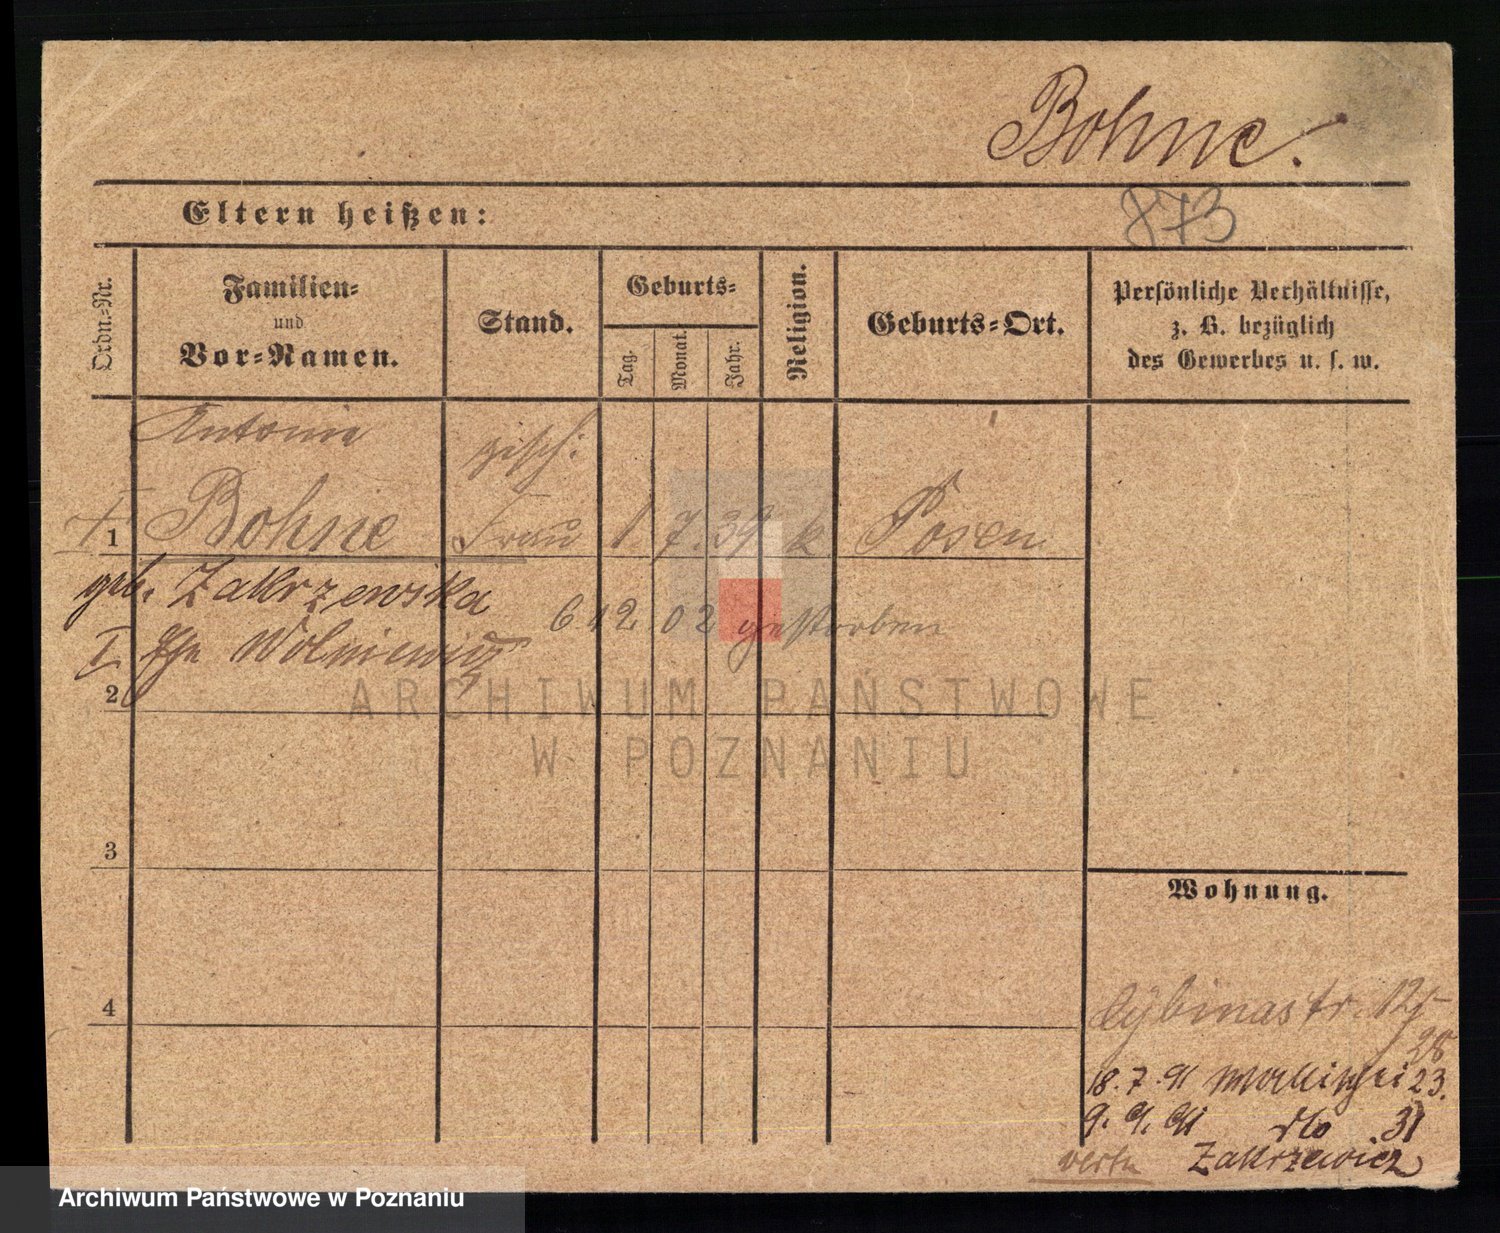 Bohne.
873
Eltern heißen:
Ordn.-Nr.
Familien-
und
Vor-Namen.
Stand.
Geburts-
Tag.
Monat.
Jahr.
Religion.
Geburts-Ort.
Persönliche Verhältnisse,
z. B. bezüglich
des Gewerbes u. s. w.
Antonie gesch:
1 Bohne Frau 1. 7. 39 k Posen
geb. Zakrzewska
6 12 02 gestorben
I Ehe Wolniewicz
2
ARCHIWUM PAŃSTWOWE
W POZNANIU
3
Wohnung.
4
Cybinastr. 12
28
18. 7. 91 23.
9. 9. 91 dto 31
Zakrzewicz
verte
Archiwum Państwowe w Poznaniu